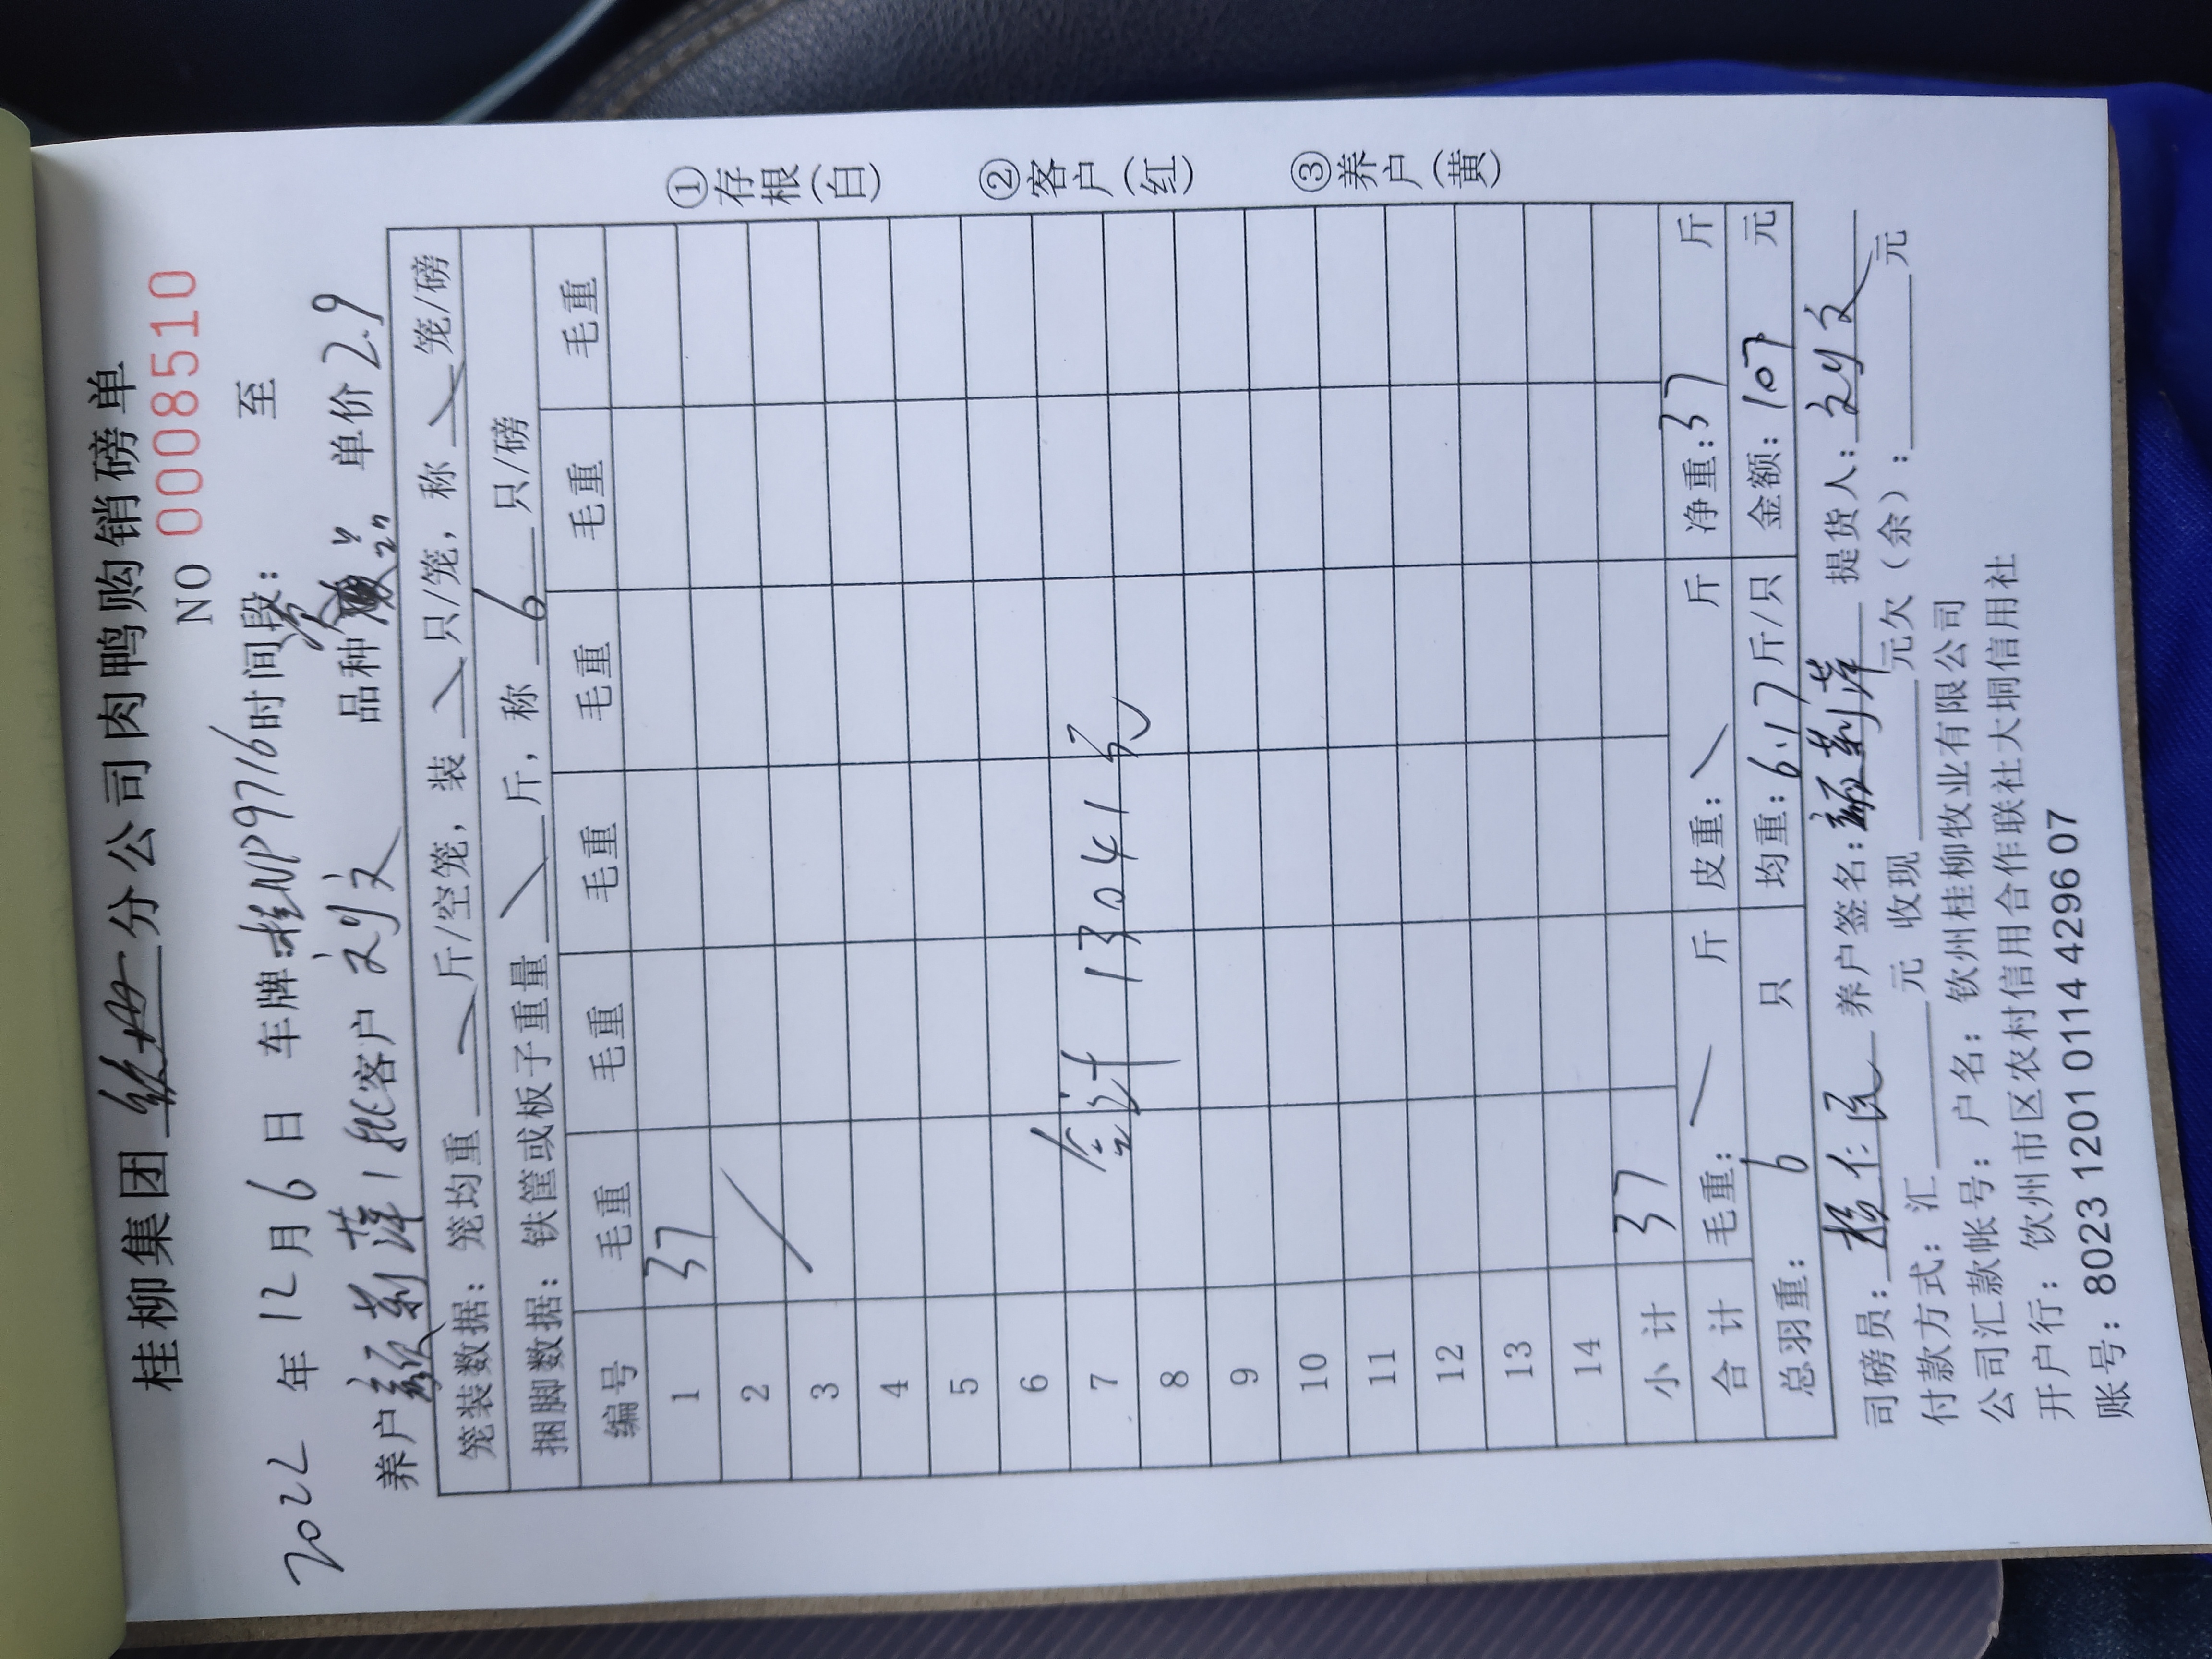 桂柳集团 钦州 分公司肉鸭购销磅单
NO 0008510
2022 年 12 月 6 日 车牌:桂NP9716 时间段: 至
养户 莉萍 1批 客户 刘文 品种 单价 2.9
笼装数据: 笼均重 斤/空笼, 装 只/笼, 称 笼/磅
捆脚数据: 铁筐或板子重量 斤, 称 6 只/磅
编号 毛重 毛重 毛重 毛重 毛重 毛重
1 37
2
3
4
5
6
7 合计 13041元
8
9
10
11
12
13
14
小计 37
合计 毛重: 斤 皮重: 斤 净重: 37 斤
总羽重: 6 只 均重: 6.17 斤/只 金额: 107 元
司磅员: 养户签名: 莉萍 提货人: 刘文
付款方式: 汇 元 收现 元欠(余): 元
公司汇款帐号: 户名: 钦州桂柳牧业有限公司
开户行: 钦州市区农村信用合作联社大垌信用社
账号: 8023 1201 0114 4296 07
①存根(白) ②客户(红) ③养户(黄)